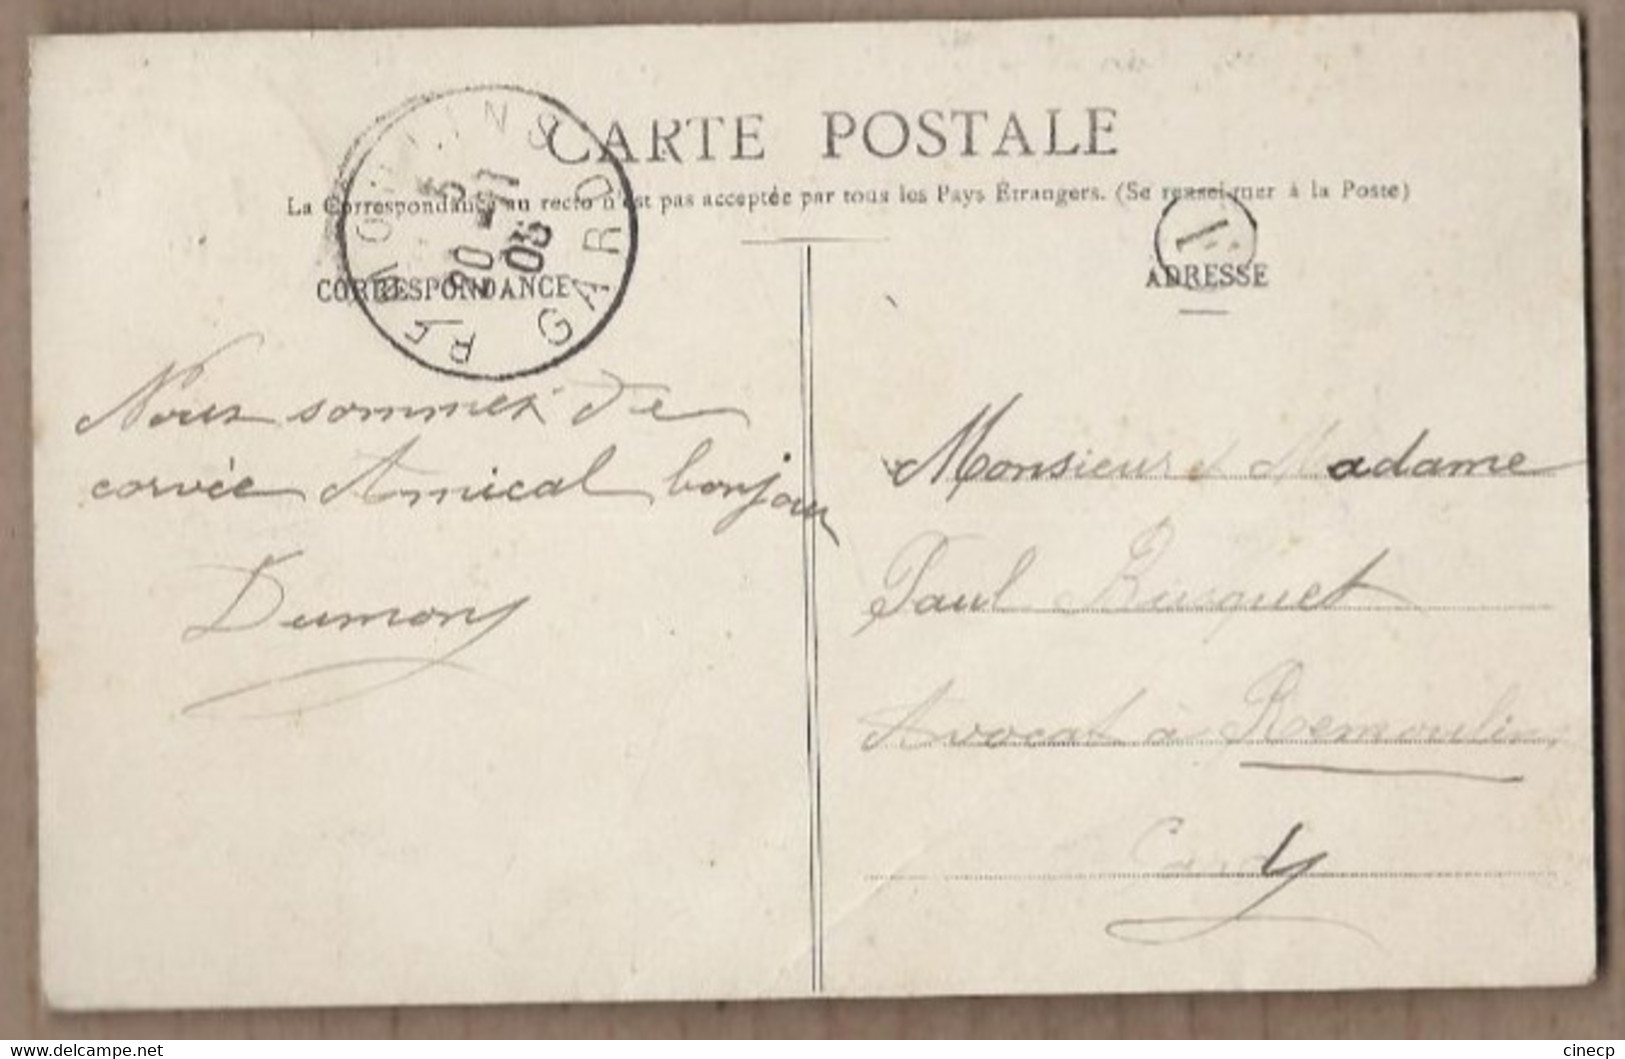 CARTE POSTALE
La Correspondance au recto n'est pas acceptée par tous les Pays Étrangers. (Se renseigner à la Poste)
REMOULINS
GARD
20 -11
08
CORRESPONDANCE
Nous sommes de
corvée Amical bonjour
Dumony
1
ADRESSE
Monsieur & Madame
Paul Busquet
Avocat à Remoulins
Gard
www.delcampe.net
cinecp